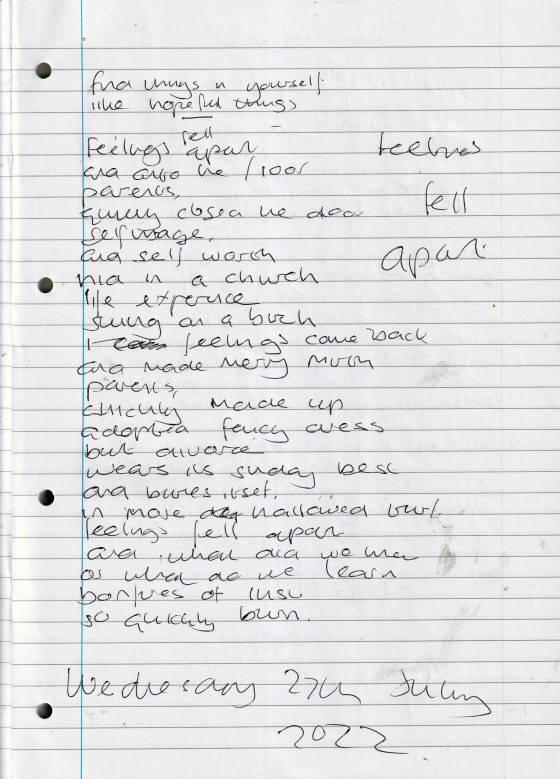 find things in yourself
like hopeful things
Feelings fell apart
and also the floor
parents,
quietly closed the door
self image,
and self worth
hid in a church
life experience
swung on a birch
I feelings come back
and made merry mirth
parents,
quickly made up
adopted fancy dress
but divorce
wears its sunday best
and buries itself,
in most hallowed turf.
feelings fell apart
and what did we
or what do we learn
bonfires of lust
so quickly burn.
feelings
fell
apart.
Wednesday 27th July
2022.